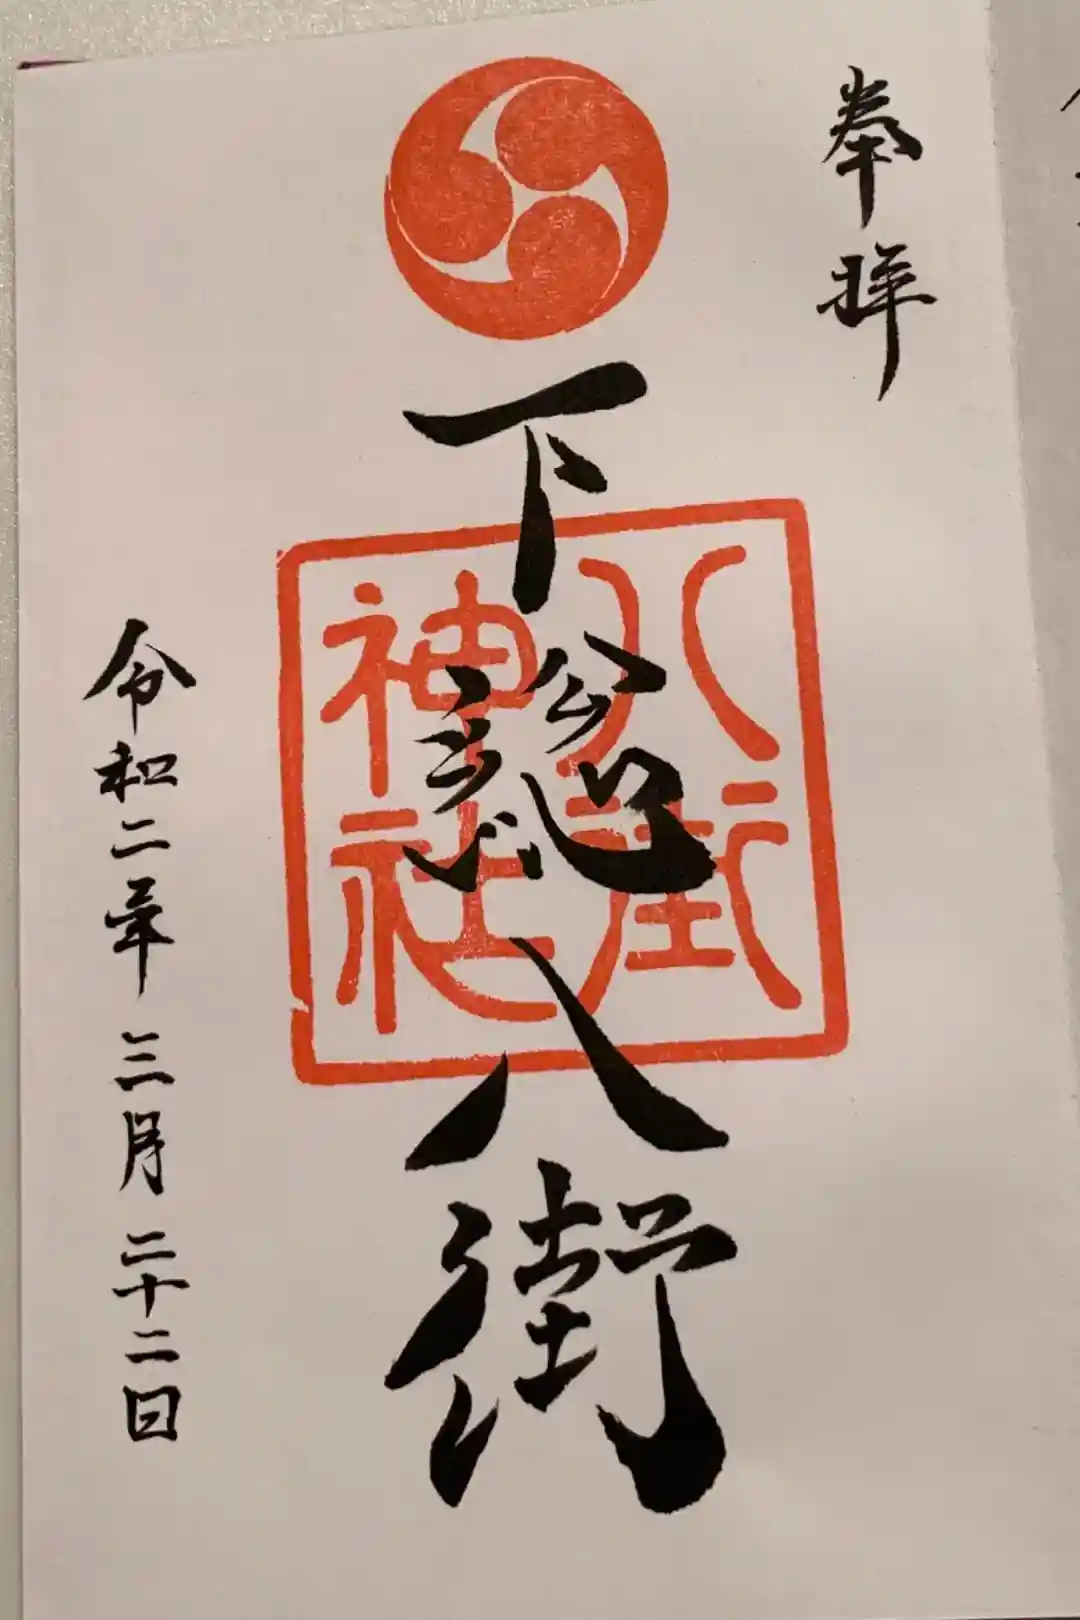 奉拝
下総八街
八街
神社
令和二年三月二十二日